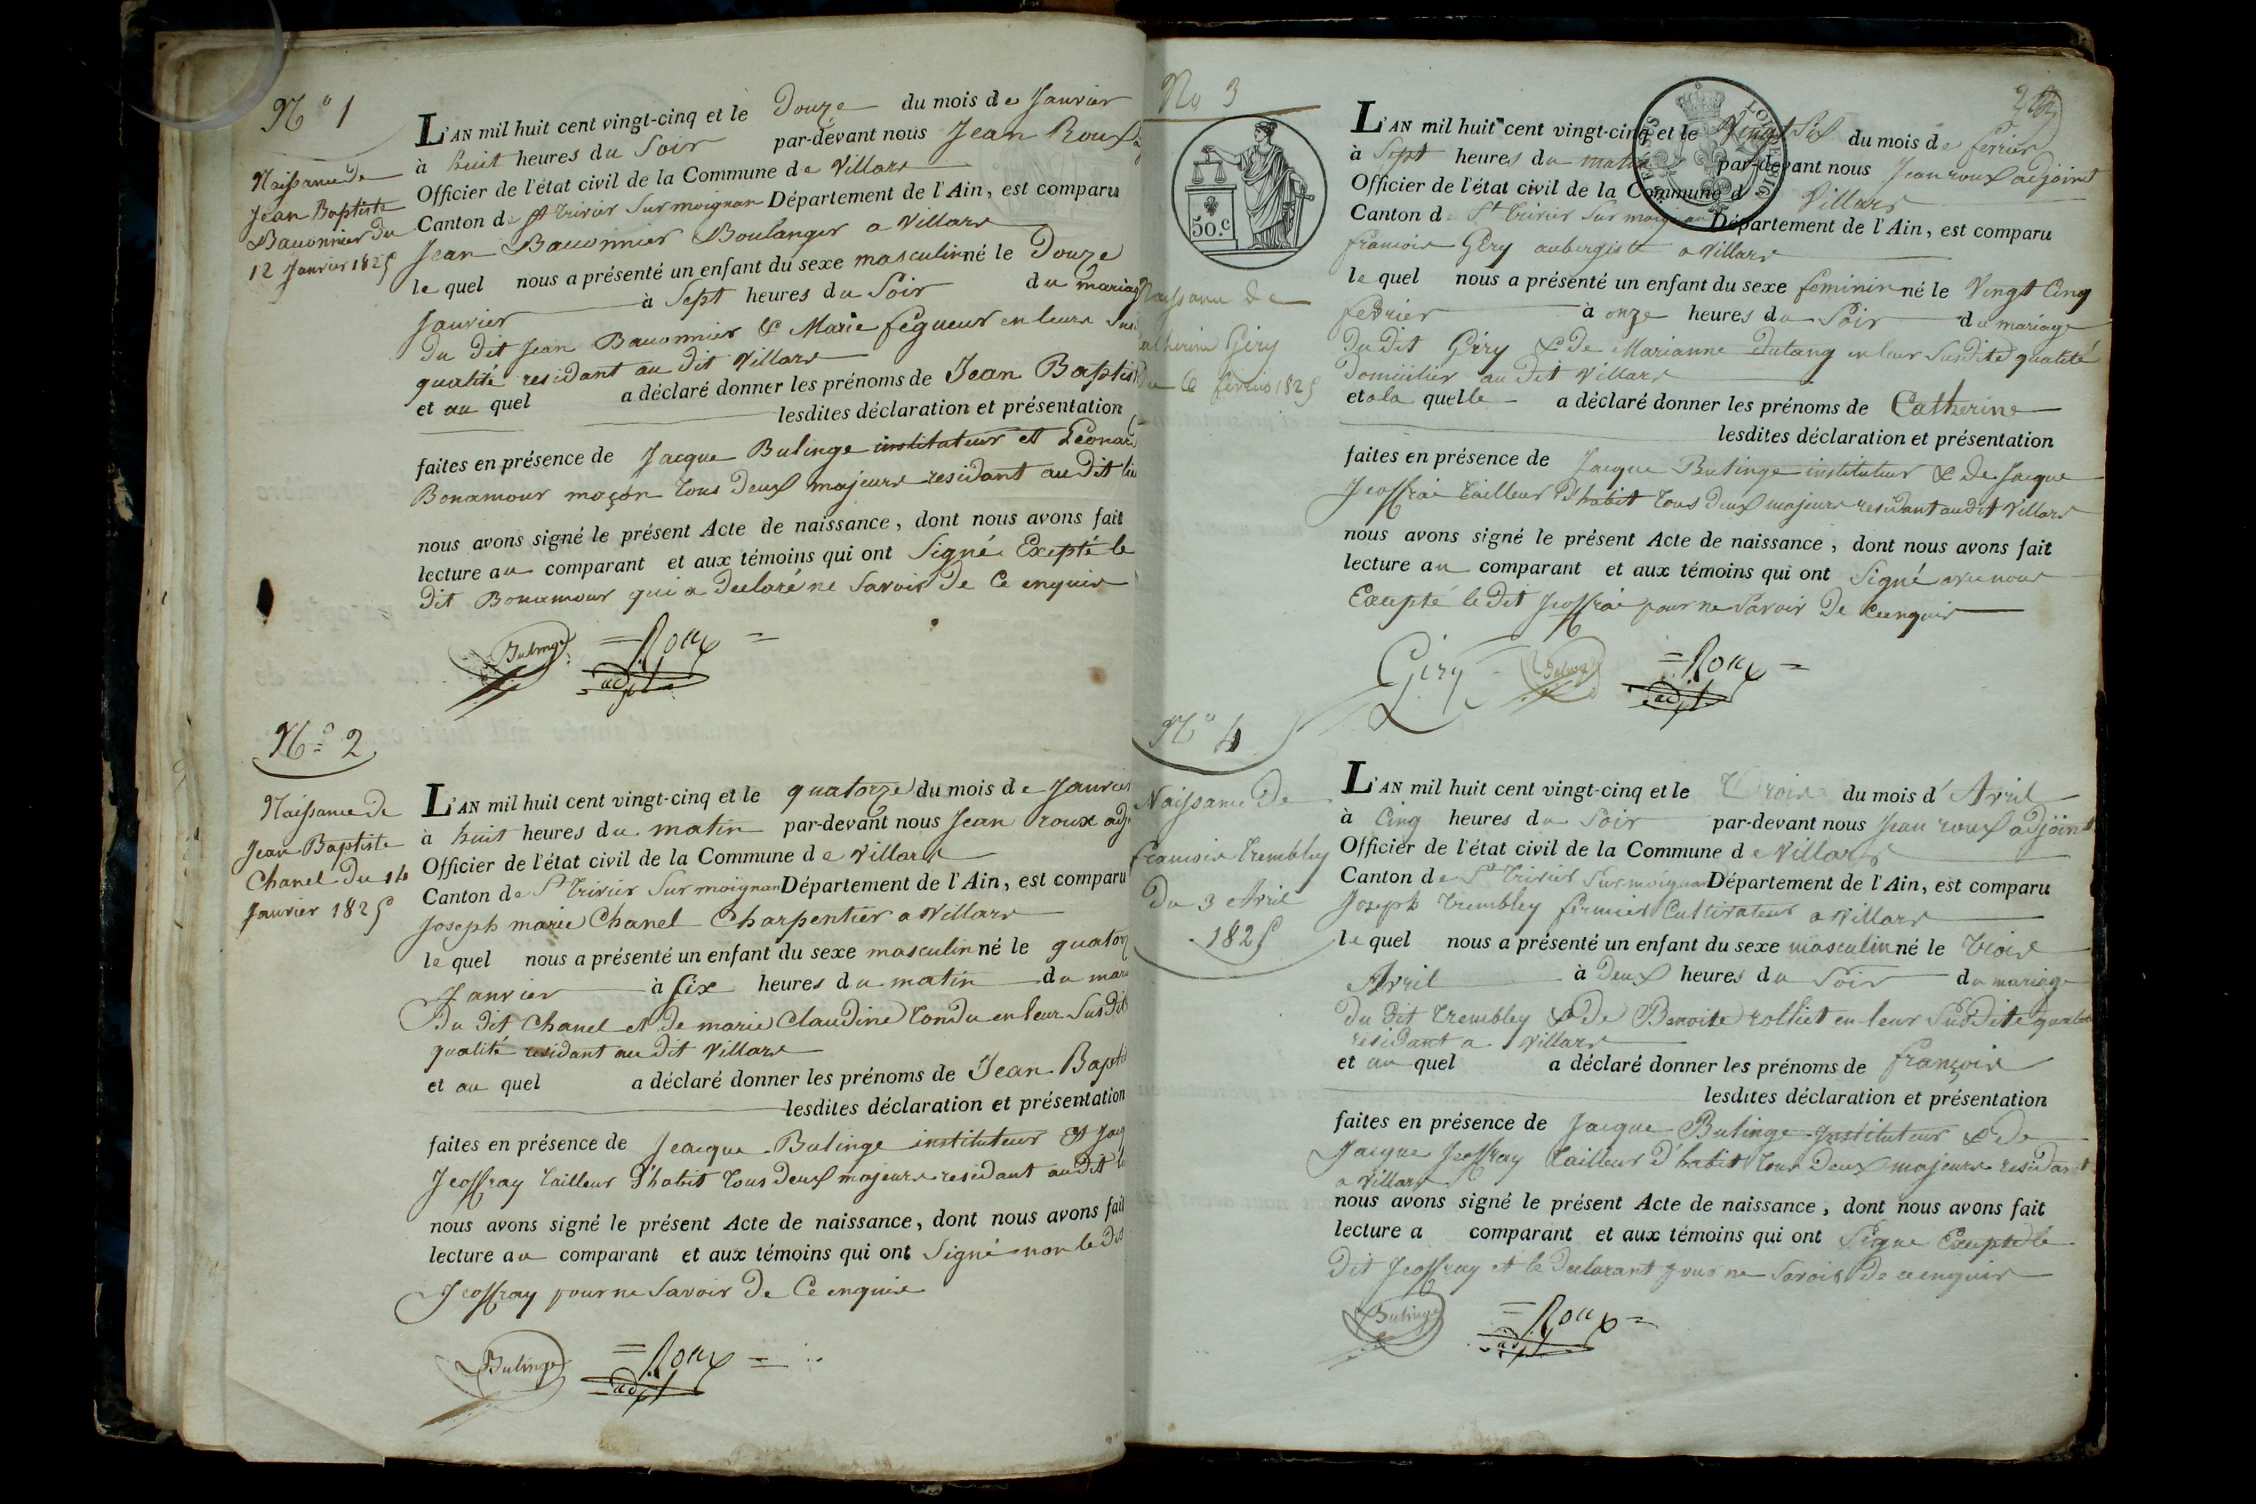 Nº 1
Naissance de
Jean Baptiste
Bauonnier du
12 Janvier 1825
L'AN mil huit cent vingt-cinq et le Douze du mois de Janvier
à huit heures du Soir par-devant nous Jean Roux
Officier de l'état civil de la Commune de Villars
Canton de St trivier Sur moignan Département de l'Ain, est comparu
Jean Bauonnier Boulanger a Villars
le quel nous a présenté un enfant du sexe masculin né le Douze
Janvier à Sept heures du Soir du mariag
du dit Jean Bauonnier & Marie fegueux en leurs Sus
qualité residant au dit Villars
et au quel a déclaré donner les prénoms de Jean Baptis
lesdites déclaration et présentation
faites en présence de Jacque Bulinge instituteur et Leonar
Bonamour maçon tous deux majeurs residant au dit lieu
nous avons signé le présent Acte de naissance, dont nous avons fait
lecture au comparant et aux témoins qui ont Signé Exepté le
dit Bonamour qui a declaré ne Savoir de Ce enquis
Bulinge = Roux =
adjt
Nº 2
Naissance de
Jean Baptiste
Chanel du 14
Janvier 1825
L'AN mil huit cent vingt-cinq et le quatorze du mois de Janvier
à huit heures du matin par-devant nous Jean roux adj
Officier de l'état civil de la Commune de Villars
Canton de St trivier Sur moignan Département de l'Ain, est comparu
Joseph marie Chanel Charpentier a Villars
le quel nous a présenté un enfant du sexe masculin né le quatorz
Janvier à six heures du matin du mari
du dit Chanel et de marie Claudine tondu en leur Susdit
qualité residant au dit Villars
et au quel a déclaré donner les prénoms de Jean Bapti
lesdites déclaration et présentation
faites en présence de Jeacque Bulinge instituteur et Jacq
Jeoffray tailleur d'habit tous deux majeurs residant au dit l
nous avons signé le présent Acte de naissance, dont nous avons fait
lecture au comparant et aux témoins qui ont Signé non le dit
Jeoffray pour ne Savoir de Ce enquis
Bulinge = Roux =
adjt
No 3
50.c
Naissance de
atherine Giry
du 6 fevrier 1825
L'AN mil huit cent vingt-cinq et le Vingt Six du mois de fevrier
à Sept heures du matin par-devant nous Jean roux adjoint
Officier de l'état civil de la Commune d Villars
Canton d St trivier Sur moignan Département de l'Ain, est comparu
francois Giry aubergiste a Villars
le quel nous a présenté un enfant du sexe feminin né le Vingt Cinq
fevrier à onze heures du Soir du mariage
du dit Giry & de Marianne dutang en leur Susdite qualité
domicilier au dit Villars
et a la quelle a déclaré donner les prénoms de Catherine
lesdites déclaration et présentation
faites en présence de Jacque Bulinge instituteur & de Jacque
Jeoffrai tailleur d'habit tous deux majeurs residant audit Villars
nous avons signé le présent Acte de naissance, dont nous avons fait
lecture au comparant et aux témoins qui ont Signé avec nous
Excepté le dit Jeoffrai pour ne Savoir de Ce enquis
Giry Bulinge = Roux =
adjt
Nº 4
Naissance de
francois trembley
du 3 Avril
1825
L'AN mil huit cent vingt-cinq et le trois du mois d'Avril
à Cinq heures du Soir par-devant nous Jean roux adjoint
Officier de l'état civil de la Commune de Villars
Canton de St trivier Sur moignan Département de l'Ain, est comparu
Joseph trembley fermier Cultivateur a Villars
le quel nous a présenté un enfant du sexe masculin né le trois
Avril à Deux heures du Soir du mariage
du dit trembley & de Benoite rolliet en leur Susdite qualité
residant a Villars
et au quel a déclaré donner les prénoms de françois
lesdites déclaration et présentation
faites en présence de Jacque Bulinge Instituteur & de
Jacque Jeoffray tailleur d'habit tous deux majeurs residant
a Villars
nous avons signé le présent Acte de naissance, dont nous avons fait
lecture a comparant et aux témoins qui ont Signe Excepté le
dit Jeoffray et le declarant pour ne Savoir de ce enquis
Bulinge = Roux =
adjt